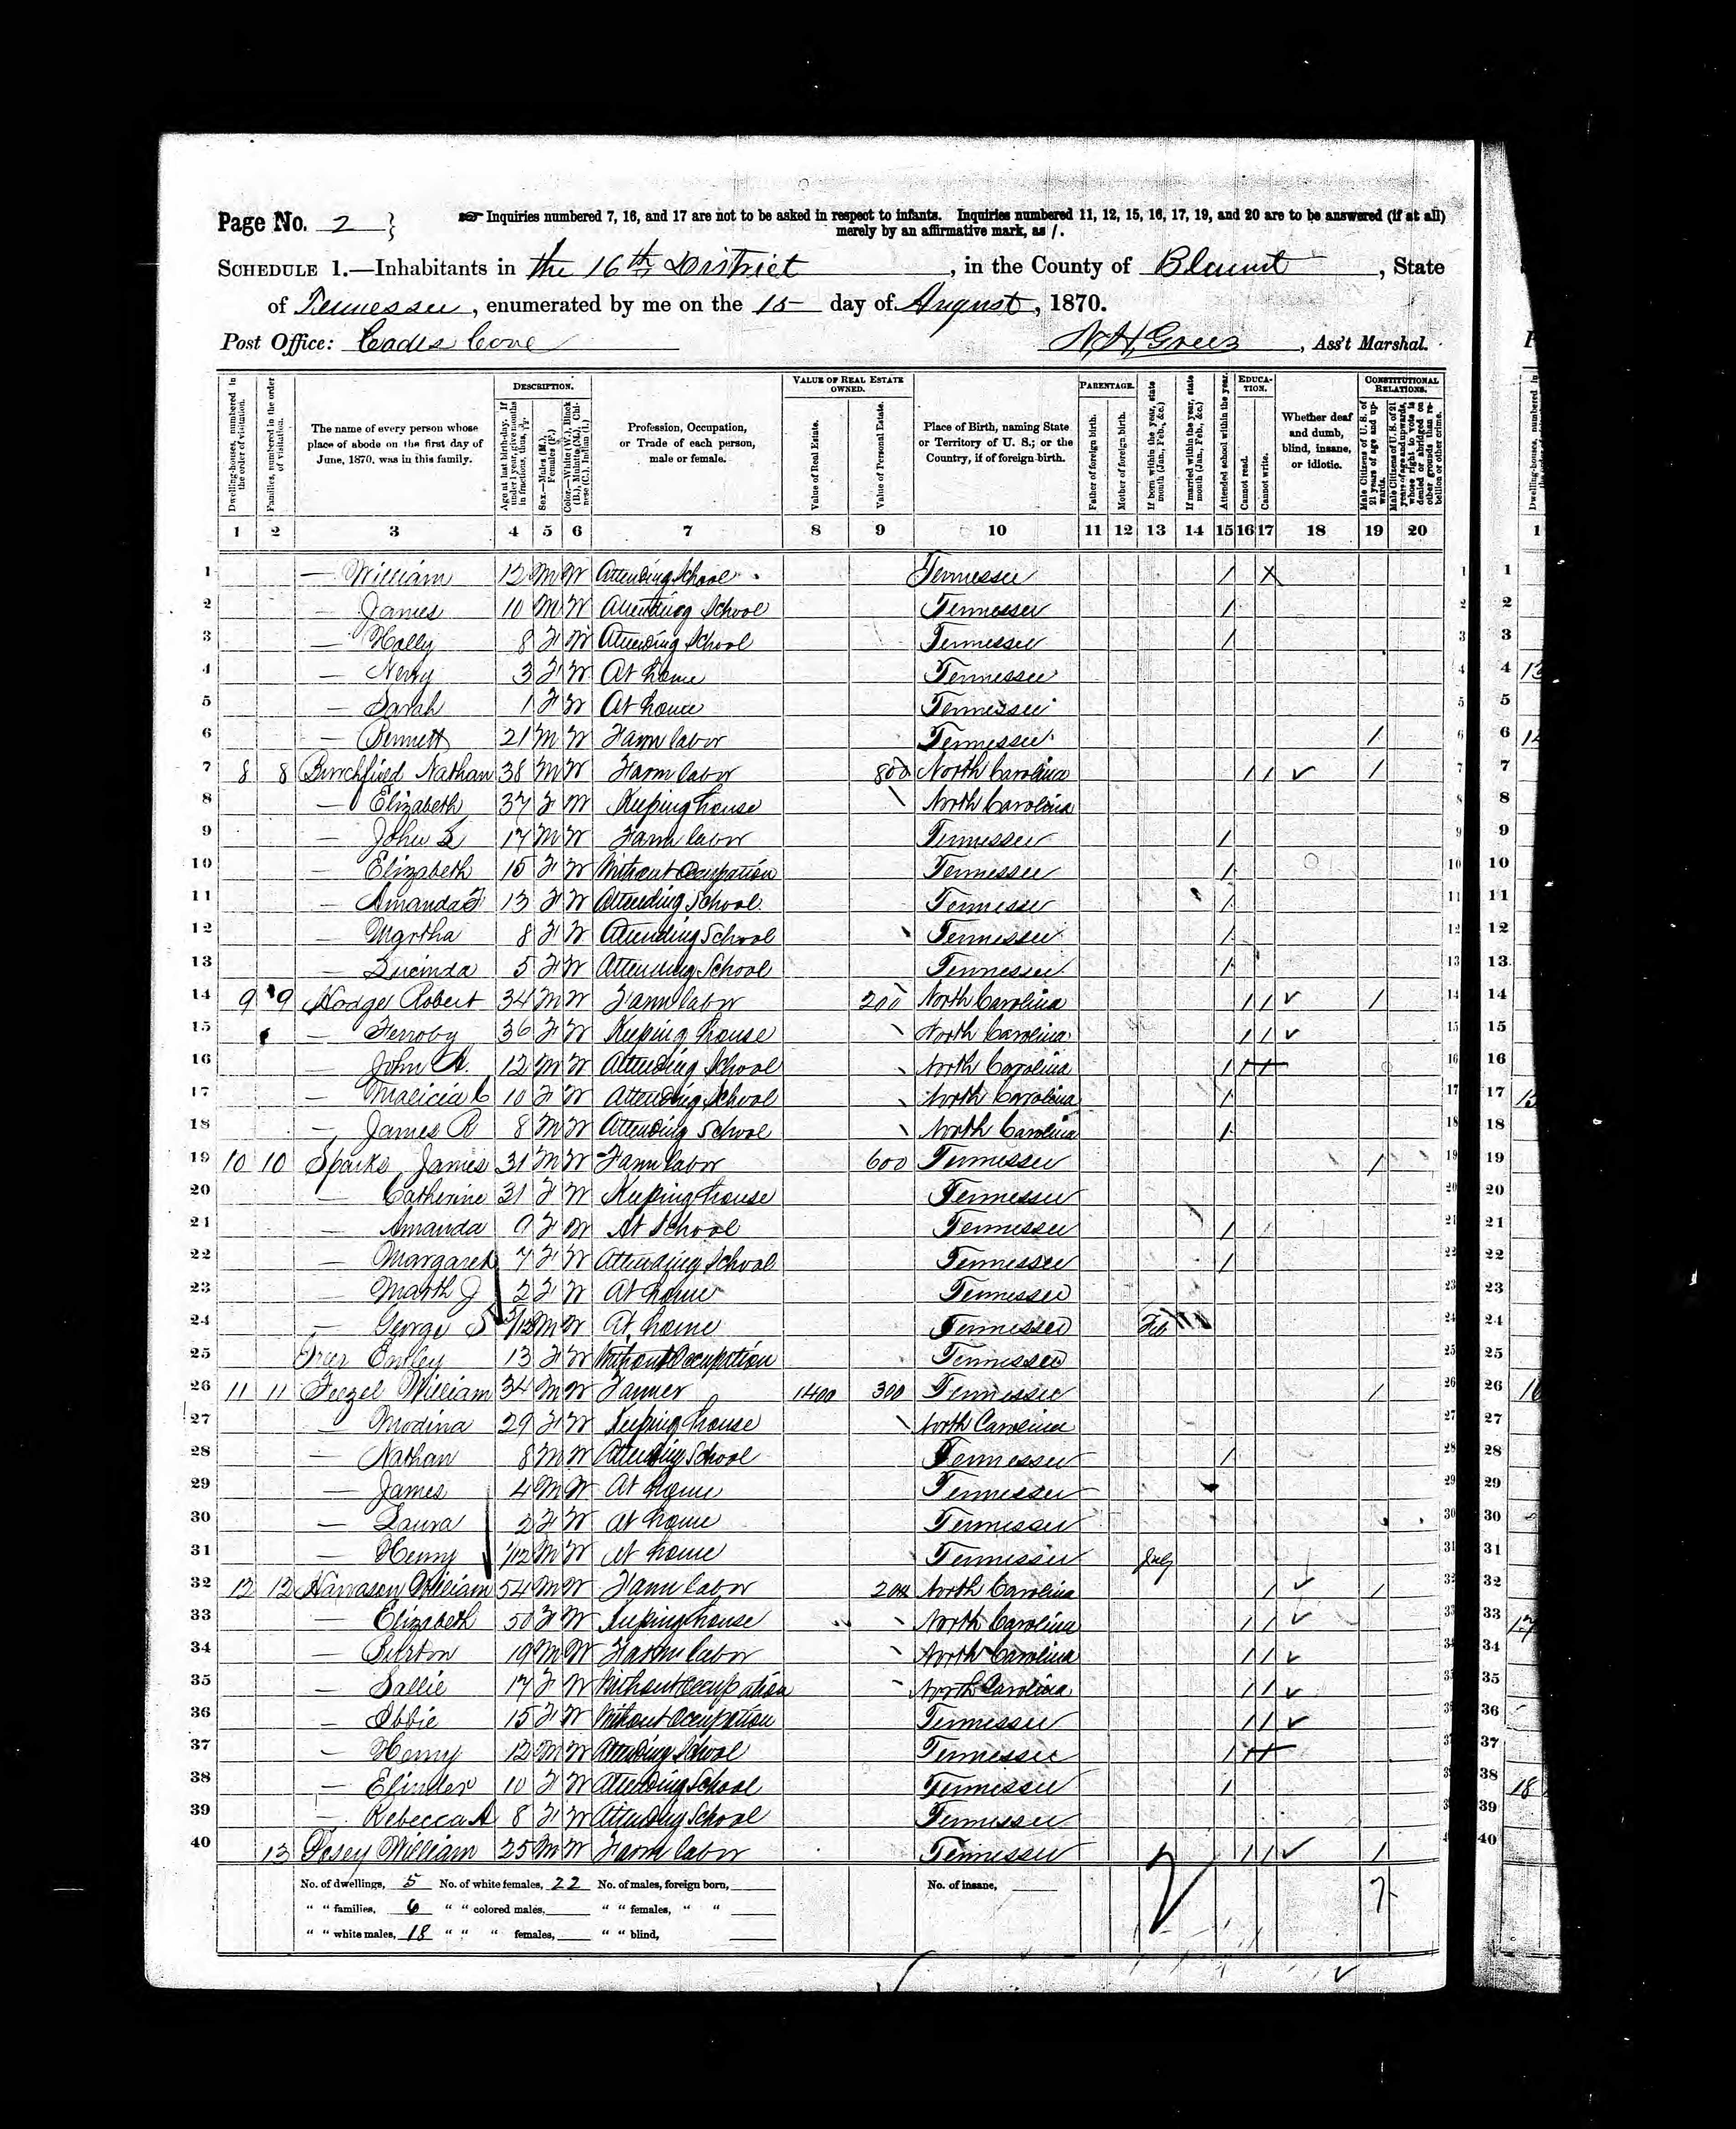 Page No. 2 }
Inquiries numbered 7, 16, and 17 are not to be asked in respect to infants. Inquiries numbered 11, 12, 15, 16, 17, 19, and 20 are to be answered (if at all)
merely by an affirmative mark, as /.
SCHEDULE 1.—Inhabitants in the 16th District, in the County of Blount, State
of Tennessee, enumerated by me on the 15 day of August, 1870.
Post Office: Cades Cove
, Ass't Marshal.
DESCRIPTION. VALUE OF REAL ESTATE OWNED. PARENTAGE. EDUCATION. CONSTITUTIONAL RELATIONS.
Dwelling-houses, numbered in the order of visitation.
Families, numbered in the order of visitation.
The name of every person whose place of abode on the first day of June, 1870, was in this family.
Age at last birth-day. If under 1 year, give months in fractions, thus, 3/12.
Sex.—Males (M.), Females (F.)
Color.—White (W.), Black (B.), Mulatto (M.), Chinese (C.), Indian (I.)
Profession, Occupation, or Trade of each person, male or female.
Value of Real Estate.
Value of Personal Estate.
Place of Birth, naming State or Territory of U. S.; or the Country, if of foreign birth.
Father of foreign birth.
Mother of foreign birth.
If born within the year, state month (Jan., Feb., &c.)
If married within the year, state month (Jan., Feb., &c.)
Attended school within the year.
Cannot read.
Cannot write.
Whether deaf and dumb, blind, insane, or idiotic.
Male Citizens of U. S. of 21 years of age and upwards.
Male Citizens of U. S. of 21 years of age and upwards, whose right to vote is denied or abridged on other grounds than rebellion or other crime.
1 2 3 4 5 6 7 8 9 10 11 12 13 14 15 16 17 18 19 20
1 — William 12 M W Attending School Tennessee / X 1
2 — James 10 M W Attending School Tennessee / 2
3 — 8 F W Attending School Tennessee / 3
4 — 3 F W At home Tennessee 4
5 — Sarah 1 F W At home Tennessee 5
6 — Bennett 21 M W Farm labor Tennessee / 6
7 8 8 Burchfield Nathan 38 M W Farm labor 800 North Carolina / / ✓ / 7
8 — Elizabeth 37 F W Keeping house North Carolina 8
9 — John S 17 M W Farm labor Tennessee / 9
10 — Elizabeth 15 F W Without Occupation Tennessee / 10
11 — Amanda F 13 F W Attending School Tennessee / 11
12 — Martha 8 F W Attending School Tennessee / 12
13 — Lucinda 5 F W Attending School Tennessee / 13
14 9 9 Hodge Robert 34 M W Farm labor 200 North Carolina / / ✓ / 14
15 — Ferroby 36 F W Keeping house North Carolina / / ✓ 15
16 — John A. 12 M W Attending School North Carolina / 16
17 — Malicia C 10 F W Attending School North Carolina / 17
18 — James R 8 M W Attending School North Carolina / 18
19 10 10 Sparks James 31 M W Farm labor 600 Tennessee / 19
20 — Catherine 31 F W Keeping house Tennessee 20
21 — Amanda 9 F W At School Tennessee / 21
22 — Margaret 7 F W Attending School Tennessee / 22
23 — Marth J 2 F W At home Tennessee 23
24 — George S 5/12 M W At home Tennessee Feb 24
25 13 F W Without Occupation Tennessee 25
26 11 11 Feezel William 34 M W Farmer 1400 300 Tennessee / 26
27 — Modina 29 F W Keeping house North Carolina 27
28 — Nathan 8 M W Attending School Tennessee / 28
29 — James 4 M W At home Tennessee 29
30 — Laura 2 F W At home Tennessee 30
31 — Henry 1/12 M W At home Tennessee July 31
32 12 12 Harrason William 54 M W Farm labor 200 North Carolina / ✓ / 32
33 — Elizabeth 50 F W Keeping house North Carolina / / ✓ 33
34 — Burton 19 M W Farm labor North Carolina / / ✓ 34
35 — Sallie 17 F W Without Occupation North Carolina / / ✓ 35
36 — 15 F W Without Occupation Tennessee / / ✓ 36
37 — Henry 12 M W Attending School Tennessee / 37
38 — Elinder 10 F W Attending School Tennessee / 38
39 — Rebecca A 8 F W Attending School Tennessee 39
40 13 Posey William 25 M W Farm labor Tennessee / / ✓ / 40
No. of dwellings, 5 No. of white females, 22 No. of males, foreign born, No. of insane, 7
" " families, 6 " " colored males, " " females, " "
" " white males, 18 " " " females, " " blind,